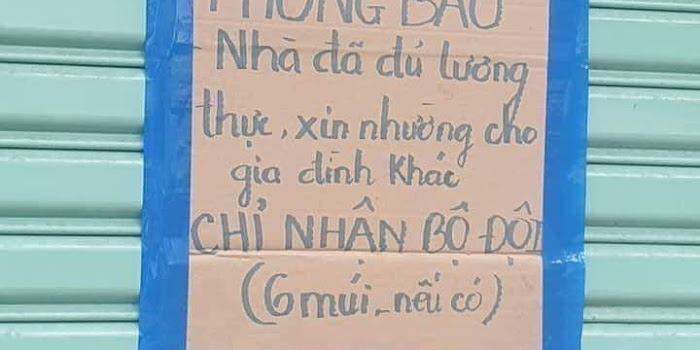 THÔNG BÁO
- Nhà đã đủ lương
thực, xin nhường cho
gia đình khác
CHỈ NHẬN BỘ ĐỘI
(6 múi, nếu có)